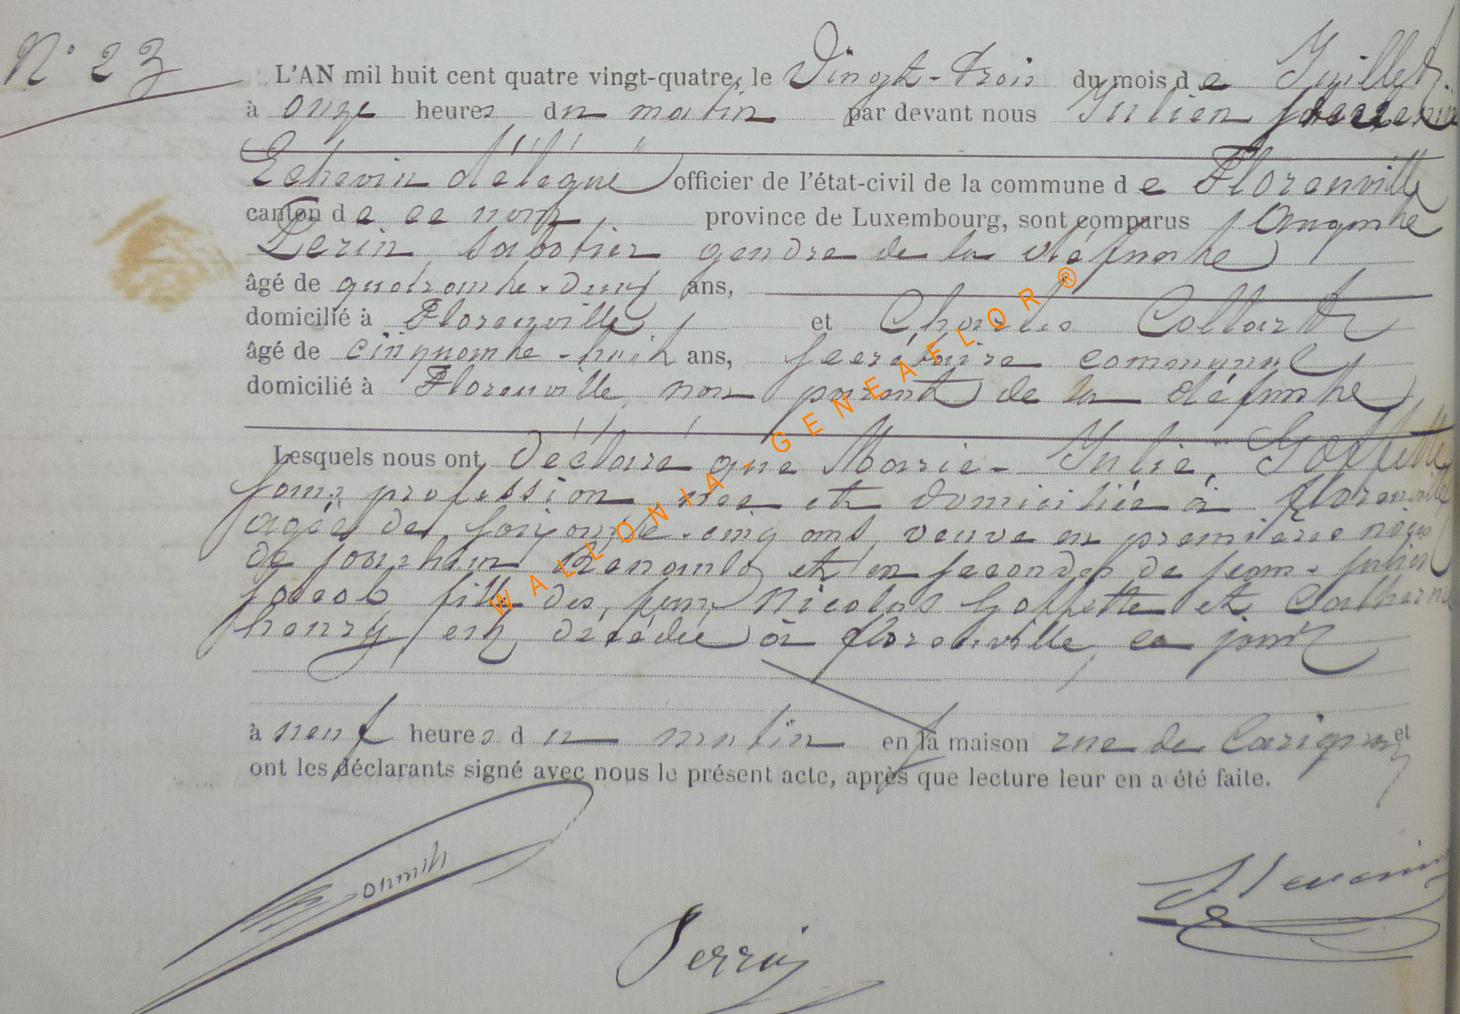 N° 23
L'AN mil huit cent quatre vingt-quatre, le Vingt-Trois du mois de Juillet
à onze heures du matin par devant nous Julien
Echevin délégué officier de l'état-civil de la commune de Florenville
canton de ce nom, province de Luxembourg, sont comparus Auguste
Perin, sabotier gendre de la défunte
âgé de quarante-deux ans,
domicilié à Florenville, et Charles Collart
âgé de cinquante-huit ans, secrétaire communal
domicilié à Florenville, non parent de la défunte
Lesquels nous ont déclaré que Marie-Julie Goffette
sans profession née et domiciliée à florenville
agée de soixante-cinq ans, veuve en premières noces
de et en secondes de jean-julien
Jacob fille des feus Nicolas Goffette et Catherine
henry, est décédée à florenville, ce jour
à neuf heures du matin en la maison rue de Carignan et
ont les déclarants signé avec nous le présent acte, après que lecture leur en a été faite.
Perrin
WALLONIA - GENEAFLOR ®